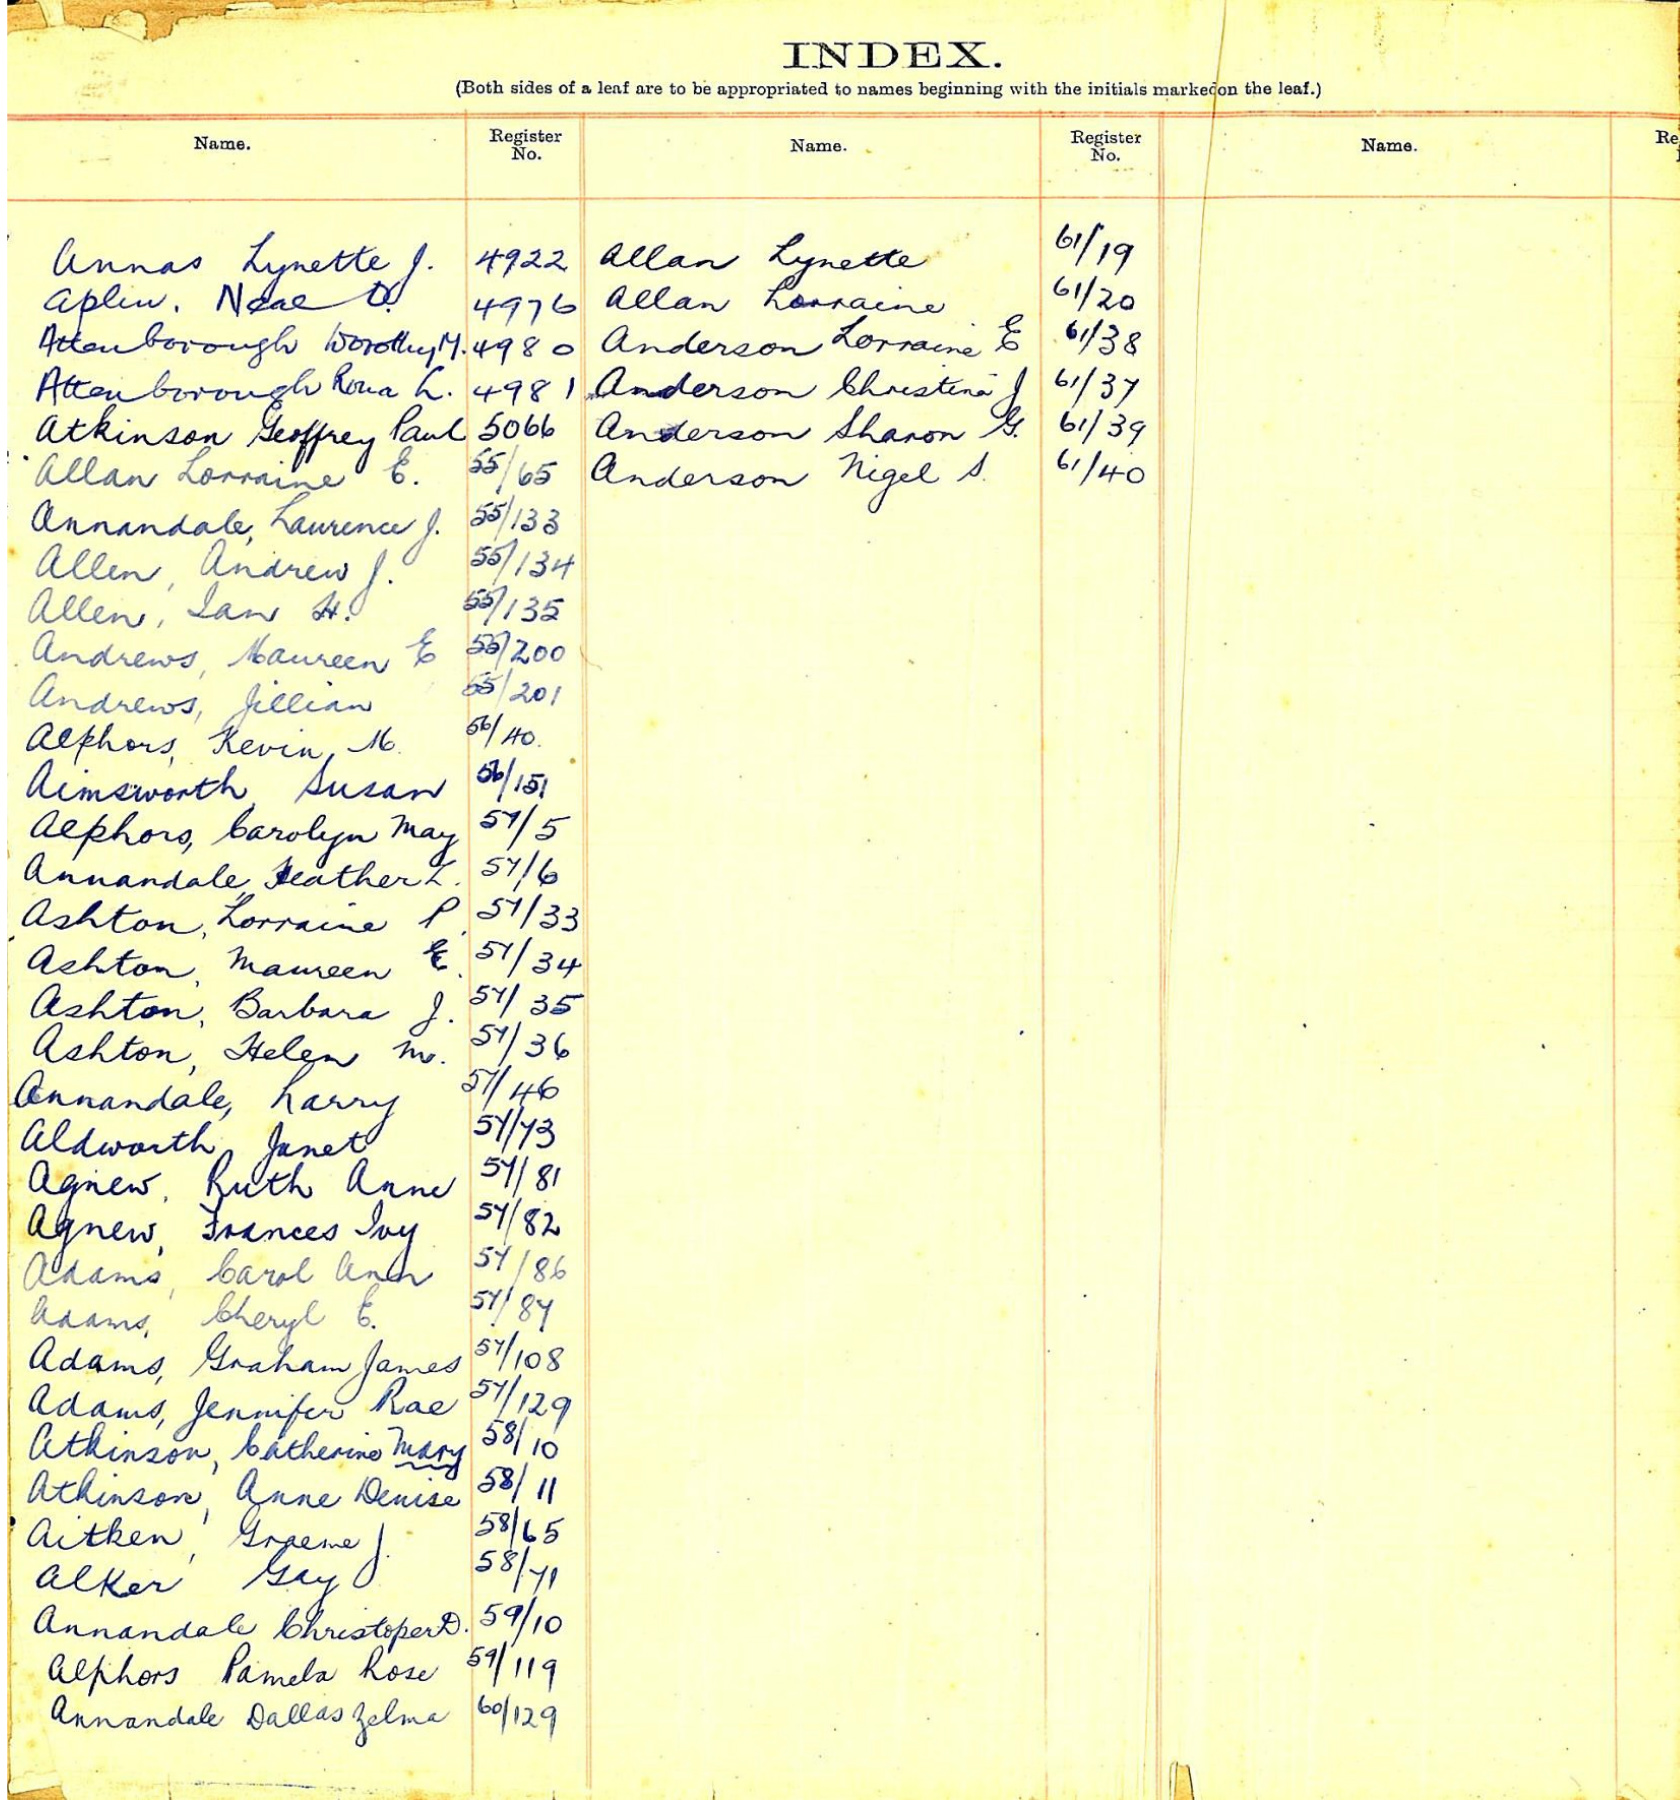 INDEX.
(Both sides of a leaf are to be appropriated to names beginning with the initials marked on the leaf.)
Name. Register No. Name. Register No. Name. Re
Annas Lynette J. 4922
Aplin. Neal D. 4976
Attenborough Dorothy M. 4980
Attenborough Rona L. 4981
Atkinson Geoffrey Paul 5066
Allan Lorraine E. 55/65
Annandale, Laurence J. 55/133
Allen, Andrew J. 55/134
Allen, Ian H. 55/135
Andrews, Maureen E 55/200
Andrews, Jillian 55/201
Alphors, Kevin, M. 56/40.
Aimsworth Susan 56/151
Alphors, Carolyn May 57/5
Annandale, Heather L. 57/6
Ashton, Lorraine P. 57/33
Ashton, Maureen E. 57/34
Ashton, Barbara J. 57/35
Ashton, Helen M. 57/36
Annandale, Larry 57/46
Aldworth, Janet 57/73
Agnew, Ruth Anne 57/81
Agnew, Frances Ivy 57/82
Adams, Carol Ann 57/86
Adams, Cheryl E. 57/87
Adams, Graham James 57/108
Adams, Jennifer Rae 57/129
Atkinson, Catherine Mary 58/10
Atkinson, Anne Denise 58/11
Aitken, Graeme J. 58/65
Alker Gay 58/71
Annandale Christoper D. 59/10
Alphors Pamela Rose 59/119
Annandale Dallas Zelma 60/129
Allan Lynette 61/19
Allan Lorraine 61/20
Anderson Lorraine E 61/38
Anderson Christina J 61/37
Anderson Sharon G. 61/39
Anderson Nigel S. 61/40